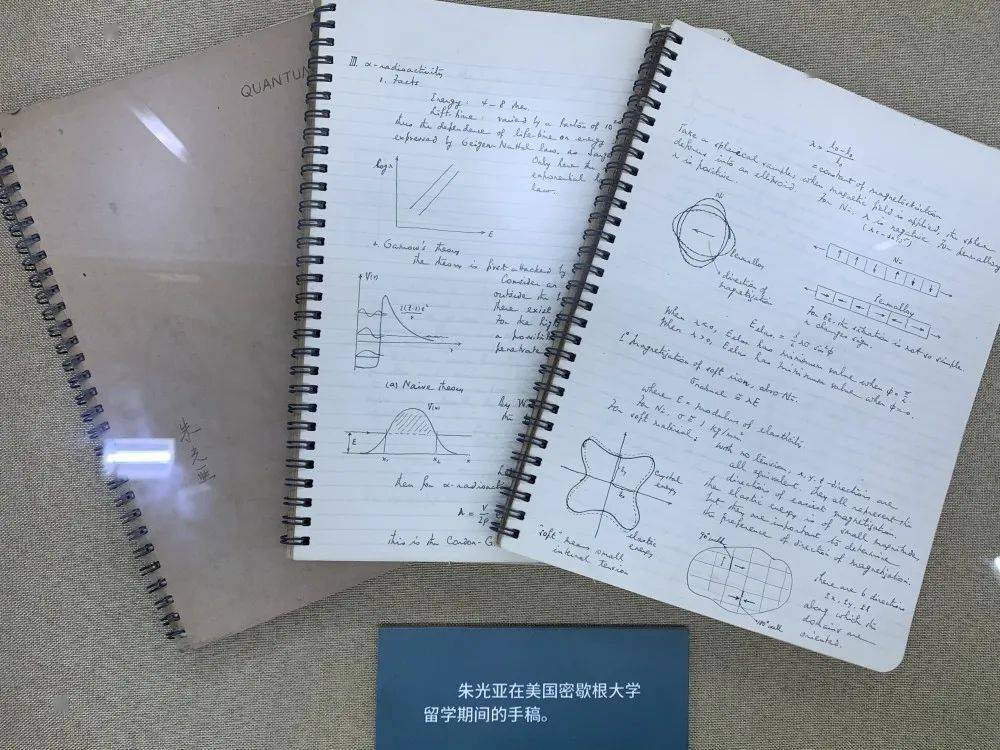 QUANTUM
朱光亚
III. α-radioactivity
1. Facts
Energy: 4-8 Mev
Lifetime: varied by a factor of 10
thus the dependence of lifetime on energy
expressed by Geiger Nuttal law, as
Only
exponential
law.
log λ
E
2. Gamow's theory
the theory is first attacked by
Consider an
outside the
there exist
For the
a possible
penetrate
V(r)
r
(a) Naive theory
V(x)
E
x₁
x₂
x
by W
then for α-radioact
λ =
this is the Condon-G
= constant of magnetostriction
Take a spherical sample, when magnetic field is applied, the sphere
deforms into an ellipsoid.
For Ni, λ is negative, for permalloy
λ is positive.
Ni
Permalloy
direction of
magnetization
Ni
Permalloy
For Fe, the situation is not so simple.
λ changes sign.
When λ<0, Eelas has minimum value when φ = π/2
When λ>0, Eelas has minimum value when φ=0.
Magnetization of soft iron, also Ni.
where E = modulus of elasticity
for Ni, σ ≅ 1 kg/mm²
For soft materials, with no tension, x, y, z directions are
all equivalent, they all represent the
direction of easiest magnetization.
the elastic energy is of small magnitude,
but they are important to determine
the preference of direction of magnetization.
Crystal
energy
elastic
energy
"soft" means small
internal tension
90° wall
180° wall
there are 6 directions
±x, ±y, ±z
along which the
domains are
oriented.
朱光亚在美国密歇根大学
留学期间的手稿。